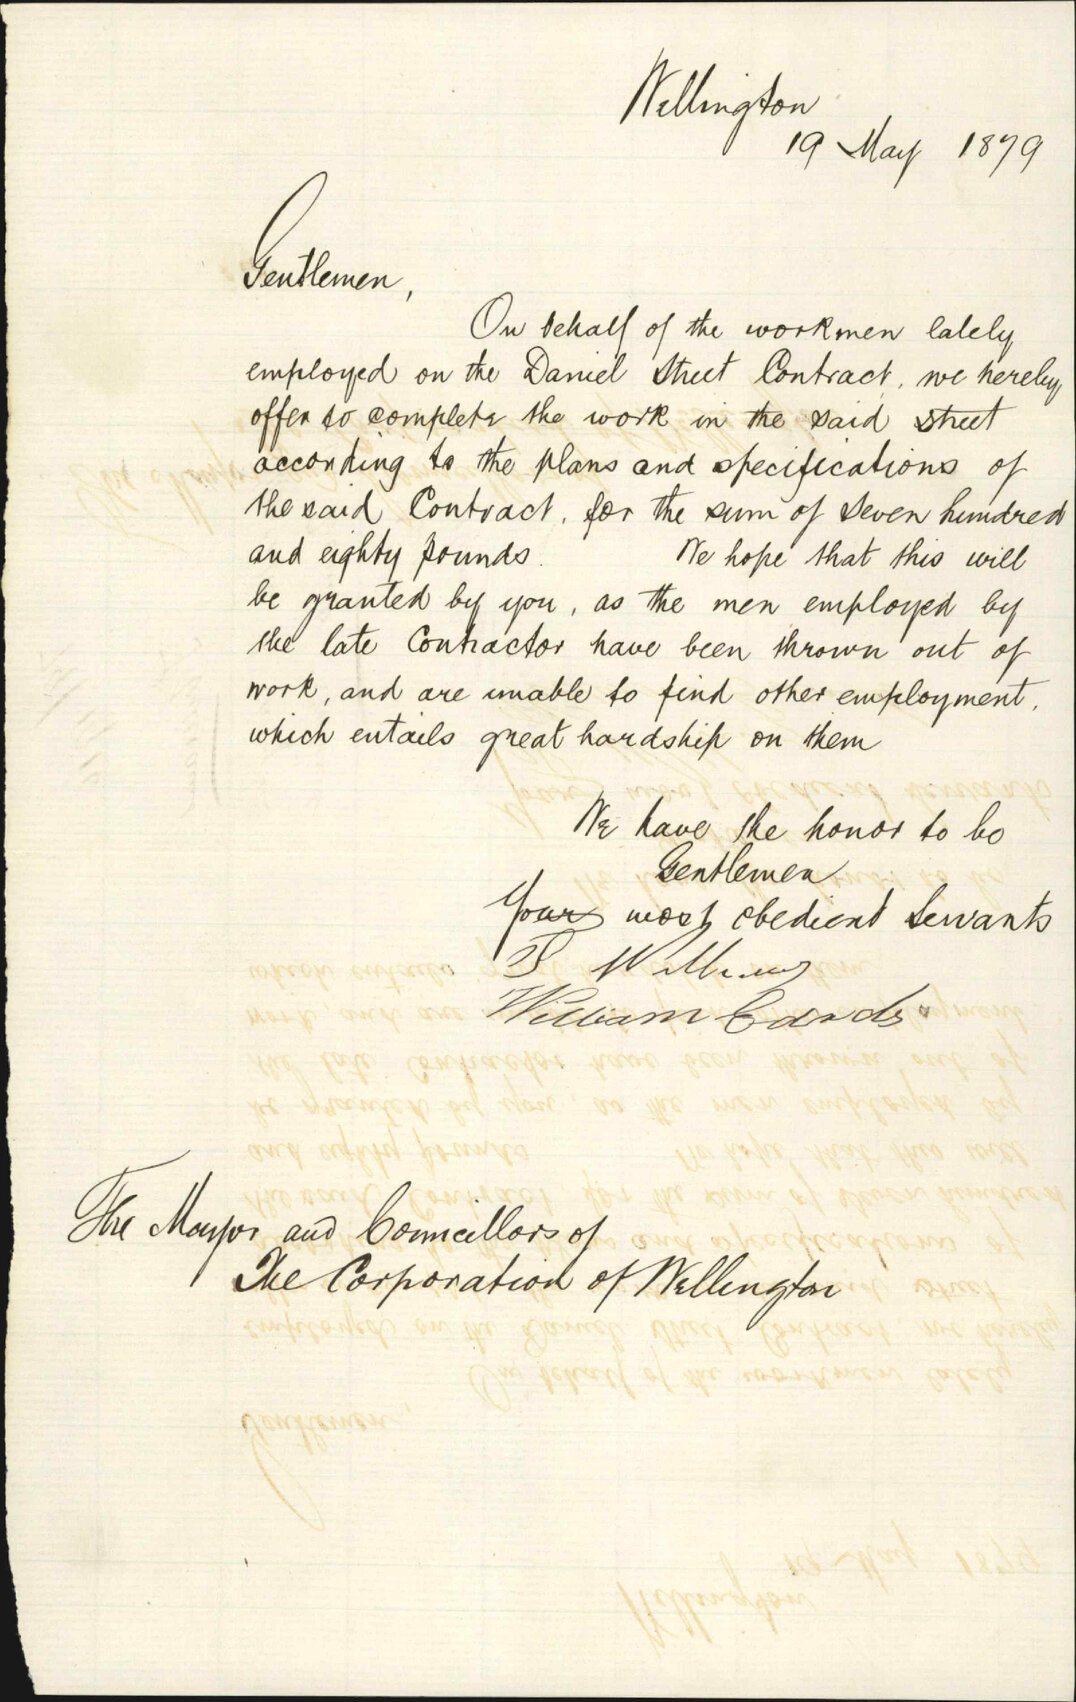 Wellington
19 May 1879
Gentlemen,
On behalf of the workmen lately
employed on the Daniel Street Contract, we hereby
offer to complete the work in the said street
according to the plans and specifications of
the said Contract, for the sum of seven hundred
and eighty pounds. We hope that this will
be granted by you, as the men employed by
the late Contractor have been thrown out of
work, and are unable to find other employment,
which entails great hardship on them
We have the honor to be
Gentlemen
Your most obedient Servants
William
The Mayor and Councillors of
The Corporation of Wellington